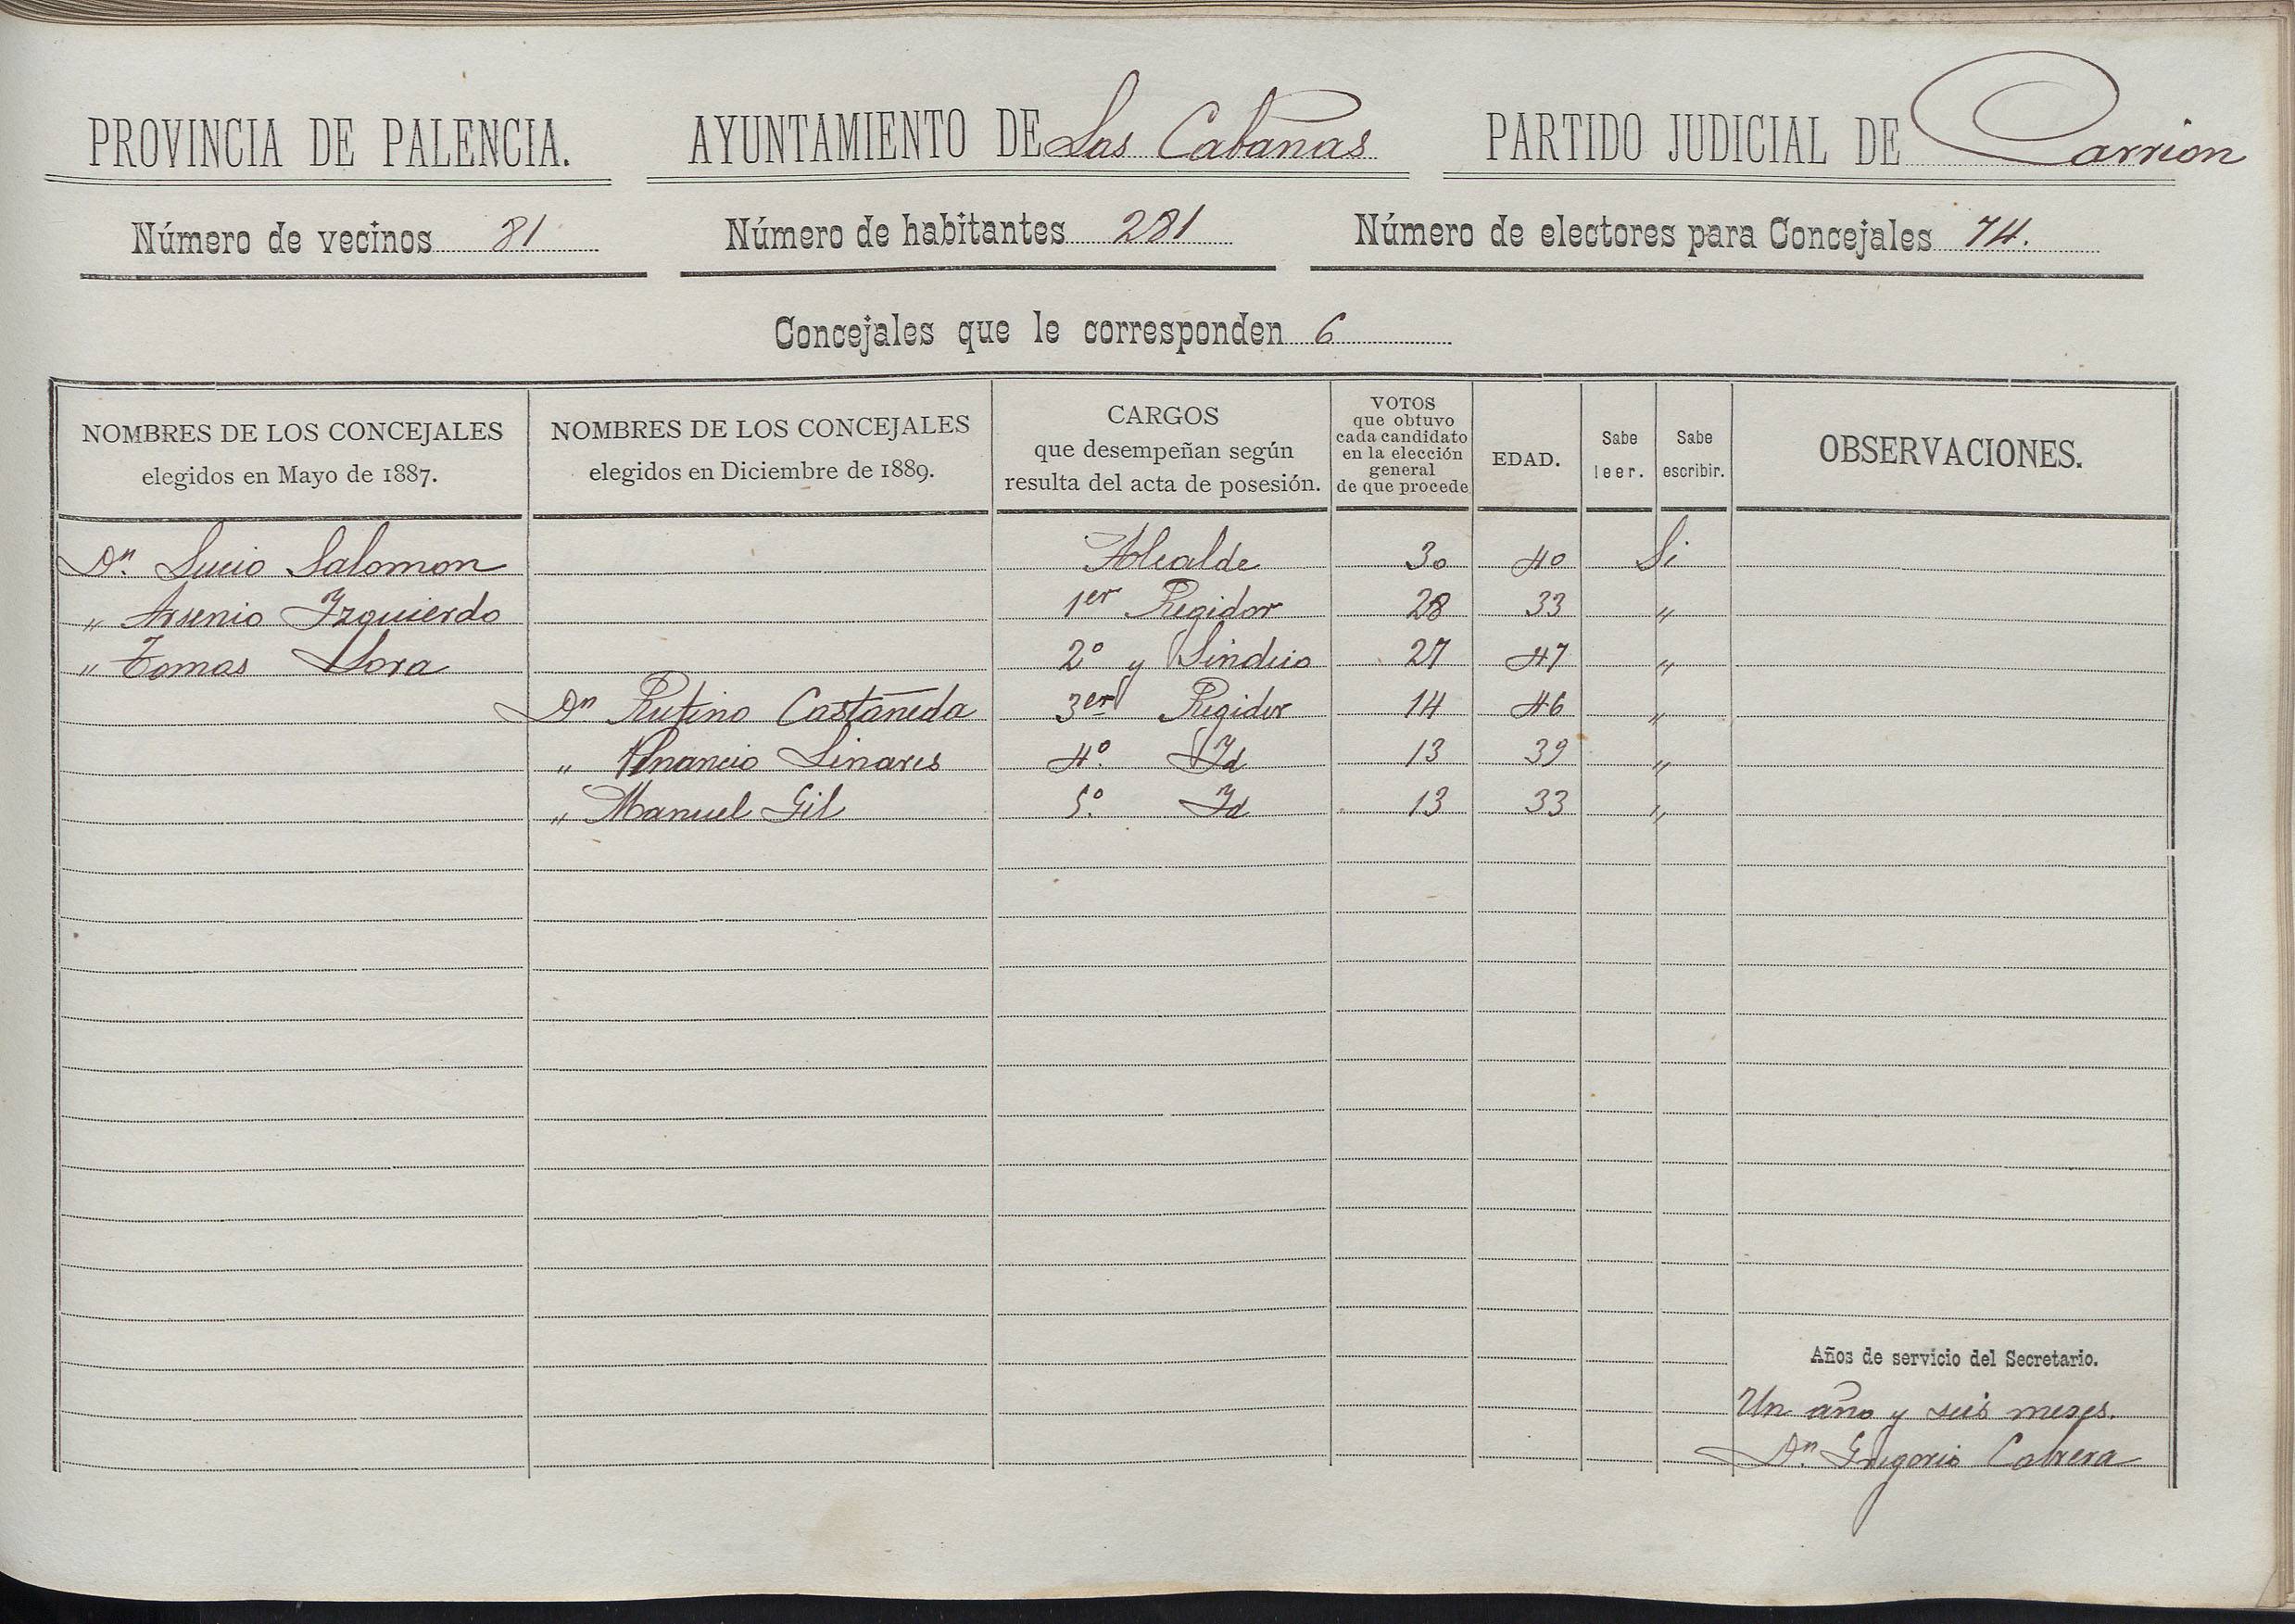 PROVINCIA DE PALENCIA. AYUNTAMIENTO DE Las Cabañas PARTIDO JUDICIAL DE Carrion
Número de vecinos 81 Número de habitantes 281 Número de electores para Concejales 74.
Concejales que le corresponden 6
NOMBRES DE LOS CONCEJALES elegidos en Mayo de 1887. NOMBRES DE LOS CONCEJALES elegidos en Diciembre de 1889. CARGOS que desempeñan según resulta del acta de posesión. VOTOS que obtuvo cada candidato en la elección general de que procede EDAD. Sabe leer. Sabe escribir. OBSERVACIONES.
Dn. Lucio Salomon Alcalde 30 40 Si
„ Arsenio Izquierdo 1er Regidor 28 33 „
„ Tomas Lora 2º y Sindico 27 47 „
Dn Rufino Castañeda 3er Regidor 14 46 „
„ Venancio Linares 4º. Id 13 39 „
„ Manuel Gil 5º. Id 13 33 „
Años de servicio del Secretario.
Un año y seis meses.
Dn. Gregorio Cabrera